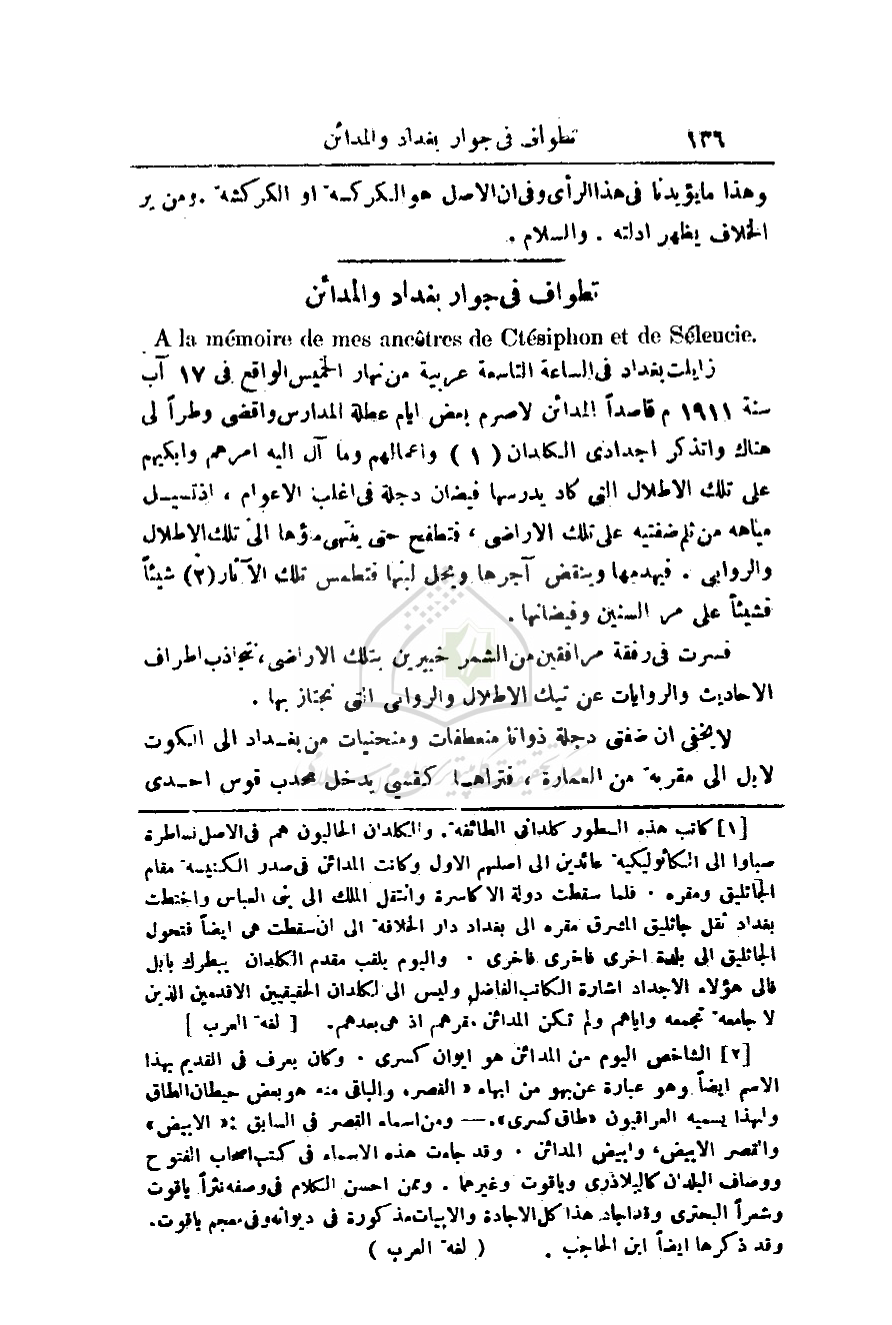 ١٣٦ تطواف فى جوار بغداد والمدائن
وهذا مايؤيدنا فى هذا الرأى وفى ان الاصل هو الكركسة او الكركشة . ومن ير
الخلاف يظهر ادلته . والسلام .
تطواف فى جوار بغداد والمدائن
A la mémoire de mes ancêtres de Ctésiphon et de Séleucie.
زايلت بغداد فى الساعة التاسعة عربية من نهار الخميس الواقع فى ١٧ آب
سنة ١٩١١ م قاصداً المدائن لاصرم بعض ايام عطلة المدارس واقضى وطراً لى
هناك واتذكر اجدادى الكلدان ( ١ ) واعمالهم وما آل اليه امرهم وابكيهم
على تلك الاطلال التى كاد يدرسها فيضان دجلة فى اغلب الاعوام ، اذ تسيل
مياهه من ثلم ضفتيه على تلك الاراضى ، فتطفح حتى ينتهى مؤها الى تلك الاطلال
والروابى . فيهدمها وينقض آجرها ويحل لبنها فتطمس تلك الآثار (٢) شيئاً
فشيئاً على مر السنين وفيضانها .
فسرت فى رفقة مرافقين من الشمر خبيرين بتلك الاراضى ، نتجاذب اطراف
الاحاديث والروايات عن تيك الاطلال والروابى التى نجتاز بها .
لا يخفى ان ضفتى دجلة ذواتا منعطفات ومنحنيات من بغداد الى الكوت
لابل الى مقربة من العمارة ، فتراهما كقسىّ يدخل محدب قوس احدى
[١] كاتب هذه السطور كلدانى الطائفة . والكلدان الحاليون هم فى الاصل نساطرة
صباوا الى الكاثوليكية عائدين الى اصلهم الاول وكانت المدائن فى صدر الكنيسة مقام
الجاثليق ومقره . فلما سقطت دولة الاكاسرة وانتقل الملك الى بنى العباس واختطت
بغداد نقل جاثليق المشرق مقره الى بغداد دار الخلافة الى ان سقطت هى ايضاً فتحول
الجاثليق الى بلدة اخرى فاخرى فاخرى . واليوم يلقب مقدم الكلدان ببطرك بابل
فالى هؤلاء الاجداد اشارة الكاتب الفاضل وليس الى لكلدان الحقيقيين الاقدمين الذين
لا جامعة تجمعه واياهم ولم تكن المدائن مقرهم اذ هى بعدهم . [ لغة العرب ]
[٢] الشاخص اليوم من المدائن هو ايوان كسرى . وكان يعرف فى القديم بهذا
الاسم ايضاً وهو عبارة عن بهو من ابهاء « القصر» والباقى منه هو بعض حيطان الطاق
ولهذا يسميه العراقيون «طاق كسرى». — ومن اسماء القصر فى السابق :« الابيض»
والقصر الابيض، وابيض المدائن . وقد جاءت هذه الاسماء فى كتب اصحاب الفتوح
ووصاف البلدان كالبلاذرى وياقوت وغيرهما . وممن احسن الكلام فى وصفه نثراً ياقوت
وشعراً البحترى وقد اجاد هذا كل الاجادة والابيات مذكورة فى ديوانه وفى معجم ياقوت.
وقد ذكرها ايضاً ابن الحاجب . ( لغة العرب )